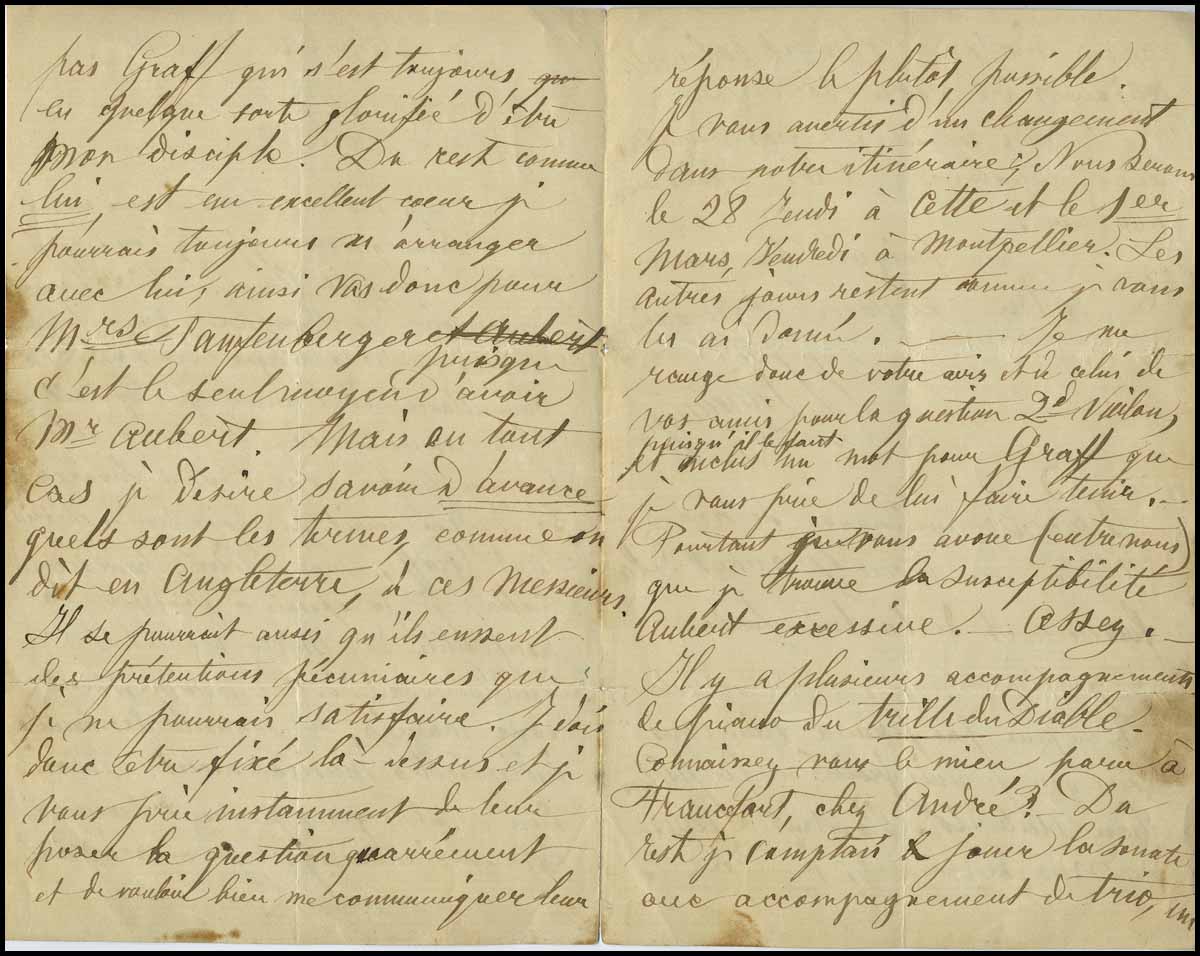 pas Graff qui s'est toujours
en quelque sorte glorifié d'être
mon disciple. Du reste comme
lui est un excellent coeur je
pourrais toujours m'arranger
avec lui, ainsi Vas donc pour
Mrs Tanfenberger et Aubert
puisque
c'est le seul moyen d'avoir
Mr Aubert. Mais en tout
cas je desire savoir d'avance
quels sont les termes, comme on
dit en Angleterre, à ces Messieurs
Il se pourrait aussi qu'ils eussent
des prétentions pécuniaires que
je ne pourrais satisfaire. J dois
donc être fixé là-dessus et je
vous prie instamment de leur
poser la question quarrément
et de vouloir bien me communiquer leur
réponse le plutôt possible.
Je vous avertis d'un changement
dans notre itinéraire; Nous serons
le 28 Jeudi à Cette et le 1er
Mars, Vendredi à Montpellier. Les
autres jours restent comme je vous
les ai donné. — Je me
range donc de votre avis et de celui de
vos amis pour la question 2d Violon,
puisqu'il le faut
et inclus un mot pour Graff que
je vous prie de lui faire tenir. —
Pourtant je vous avoue (entre nous)
que je trouve la susceptibilité
Aubert excessive. — Assez. —
Il y a plusieurs accompagnements
de piano du trille du Diable.
Connaissez vous le mien paru à
Francfort, chez André? — Du
reste je comptais jouer la sonate
avec accompagnement de trio,